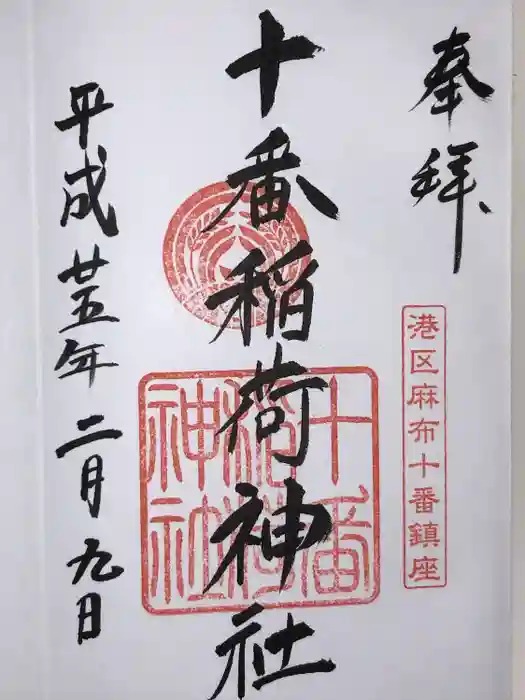 奉拝
港区麻布十番鎮座
十番稲荷神社
十番
稲荷
神社
平成廿五年二月九日